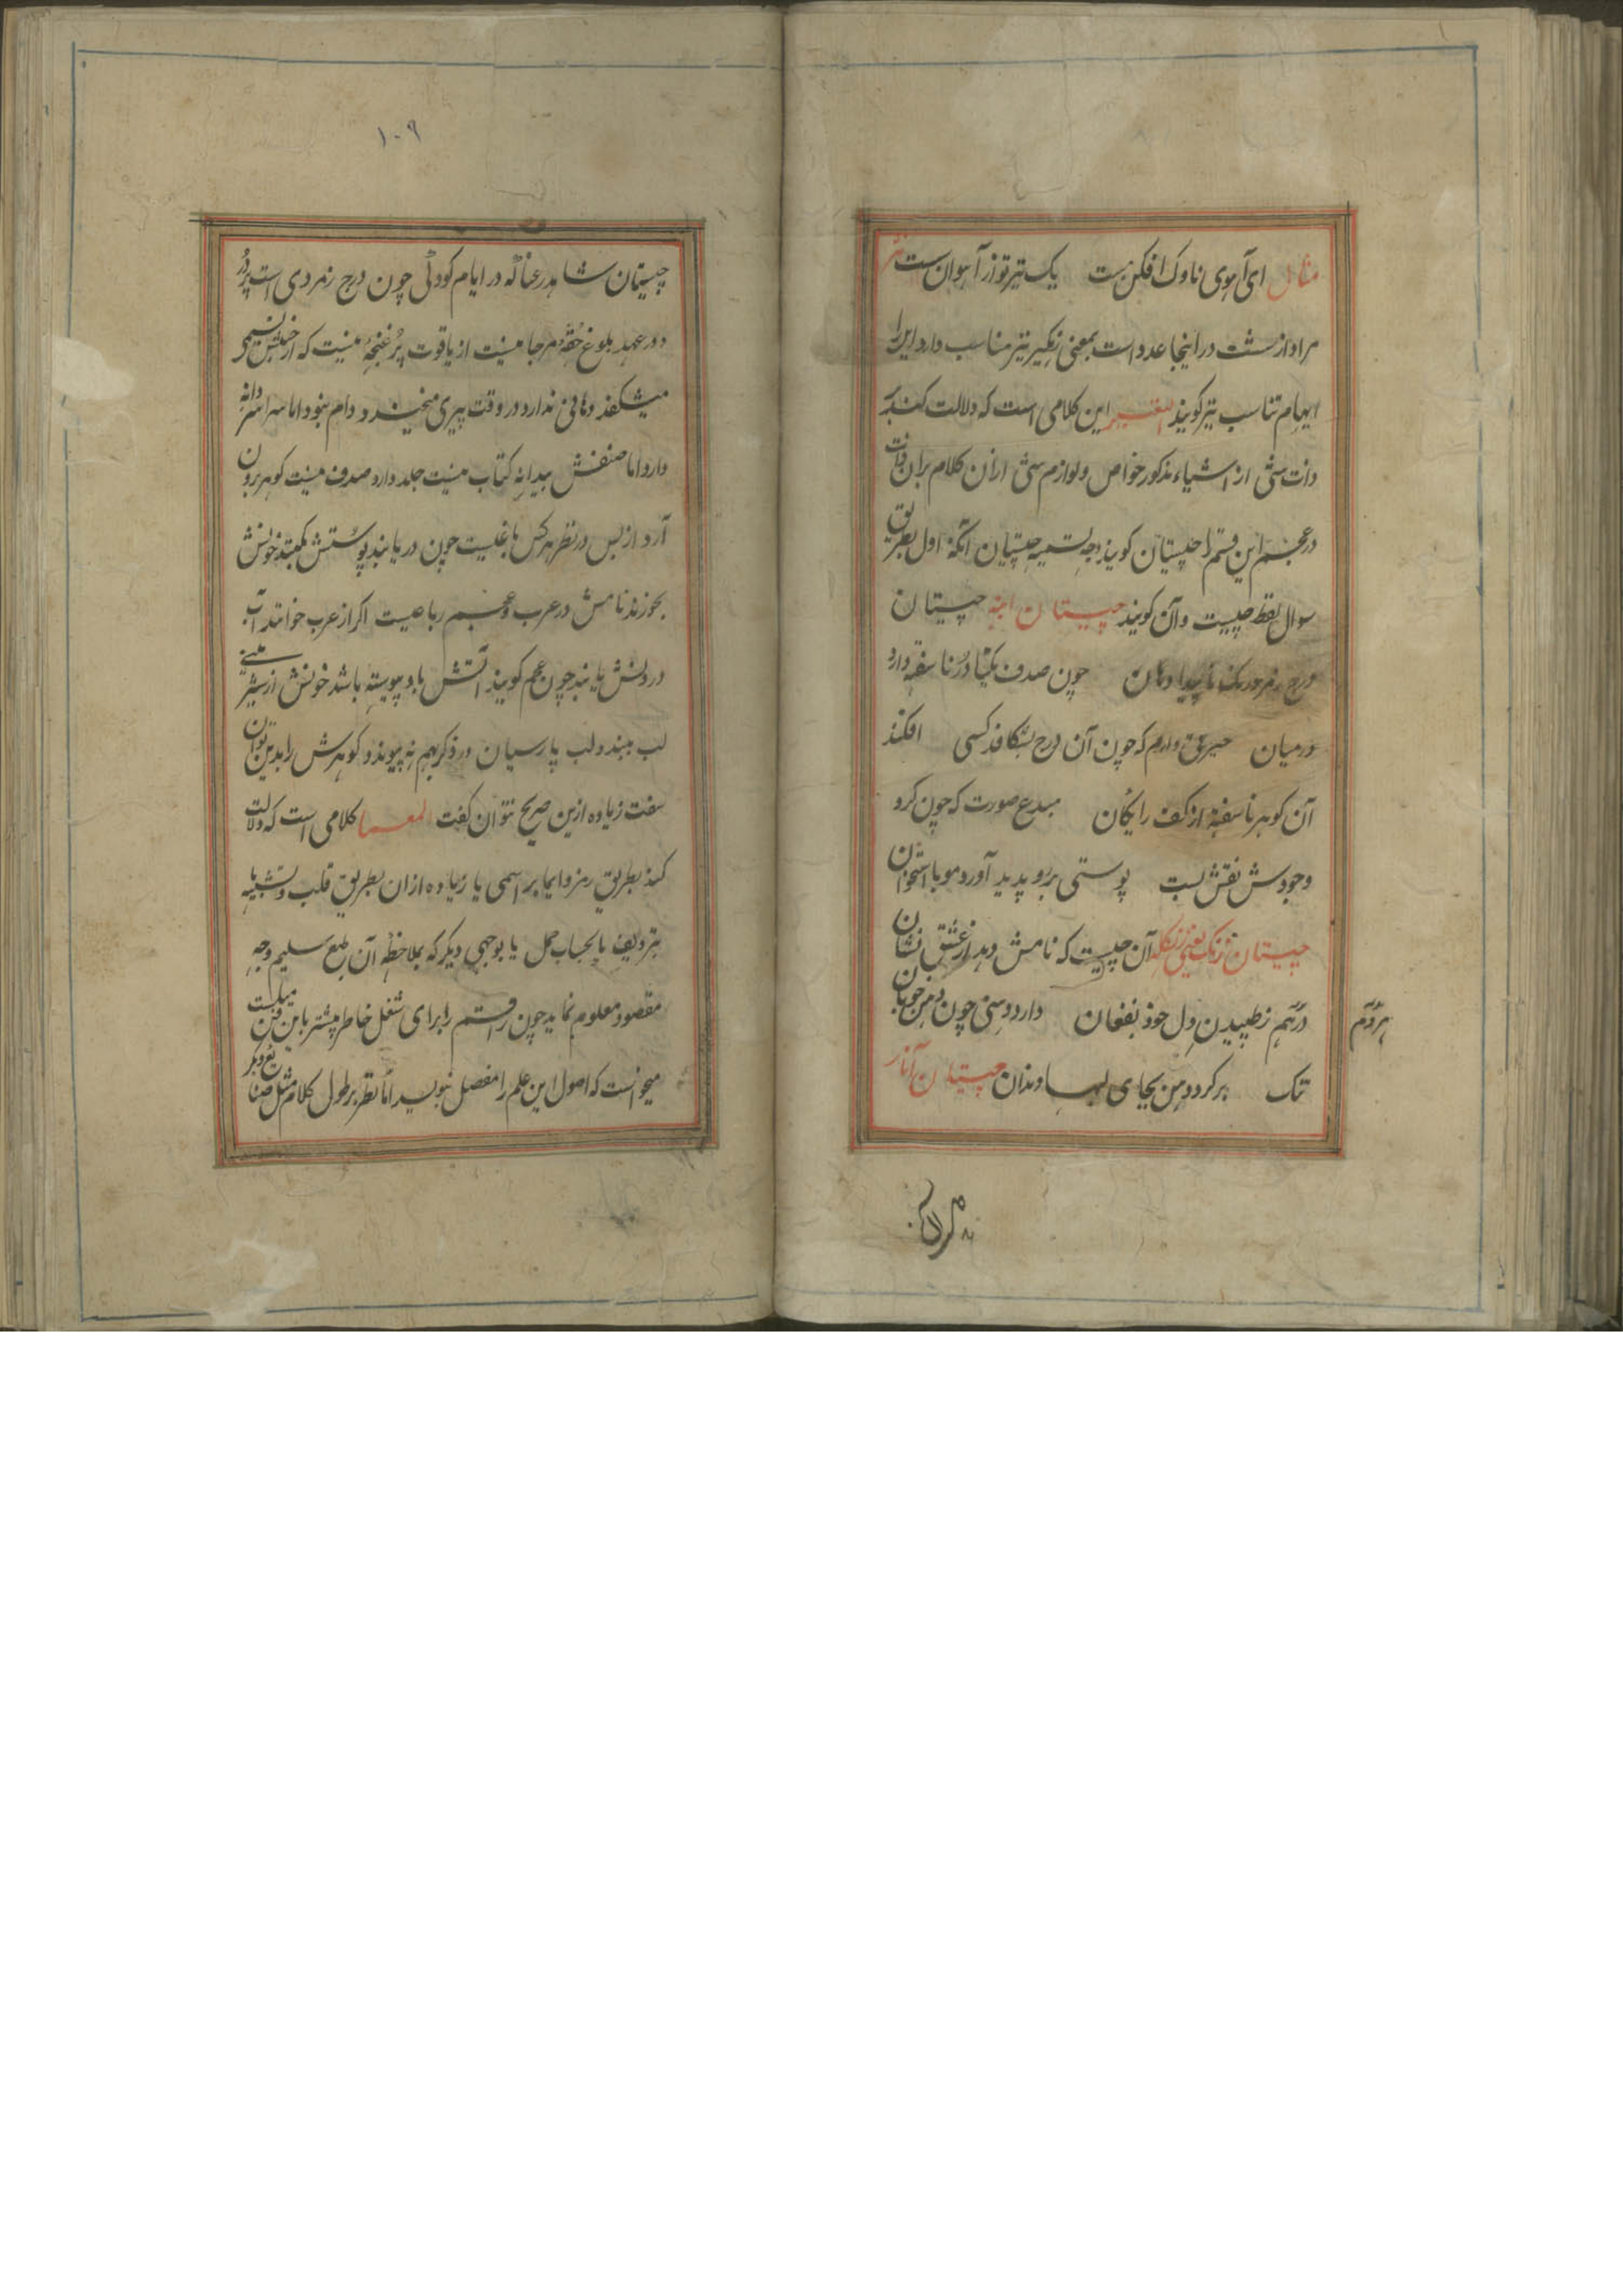 مثال ای آهوی ناوک افکن مست یک تیر تو ز آهوان شست نثر
مراد از شست در اینجا عدد است بمعنی زهگیر نیز مناسب دارد این را
ایهام تناسب نیز گویند اللغز این کلامی است که دلالت کند بر
ذات شئ از اشیاء مذکور خواص و لوازم شئ از آن کلام بران ذات
در عجم این قسم را چیستان گویند وجه تسمیه چیستان آنکه اول بطریق
سوال لفظ چیست و آن گویند چیستان انبه چیستان
درج زمرد رنگ ناپیدا دهان چون صدف یکتا در ناسفته دارد
در میان حیرتی دارم که چون آن درج بشکافد کسی افکند
آن گوهر ناسفته از کف رایگان مبدع صورت که چون کرد
وجودش نقش بست پوستی برو پدید آورد مو با استخوان
چیستان زنگ یعنی زنگله آن چیست که نامش دهد از عشق نشان
در هم ز طپیدن دل خود بفغان دارد دهنی چون دهن خوبان
هر دم
تنک بر کرد دهن بجای لبها دندان چیستان انار
۱۰۹
چیستان شاهد رعنا که در ایام کودکی چون درج زمردی است پر در
و در عهد بلوغ حقه مرجا نیست از یاقوت پر غنچه نیست که از خنده‌اش نسیمی
میشکفد دهانی ندارد در وقت پیری میخندد و دام نبود اما سراسر دانه
دارد اما صنفش بیدانه کتاب نیست جلد دارد صدف نیست گوهر برون
آرد از بس در نظر هرکس با غلیت چون دریابند پوستش بکنند خونش
بخورند نامش در عرب و عجم رباعیست اگر از عرب خوانند آب
در دلش یابند چون عجم گویند آتش با و پیوسته باشد خونش از شیرینی
لب ببندد لب پارسیان در ذکر بهم نه پیوندد گوهرش را بدین توان
سفت زیاده ازین صریح نتوان گفت المعما کلامی است که دلالت
کند بطریق رمز و ایما بر اسمی یا زیاده از ان بطریق قلب و تشبیه یا
بتردیف یا بحساب جمل یا بوجهی دیگر که بملاحظه آن طبع سلیم وجه
مقصود معلوم نماید چون راقم را برای شغل خاطر بیشتر باین فن میلست
میخواست که اصول این علم را مفصل نویسد اما نظر بر طول کلام مثل صنایع دیگر